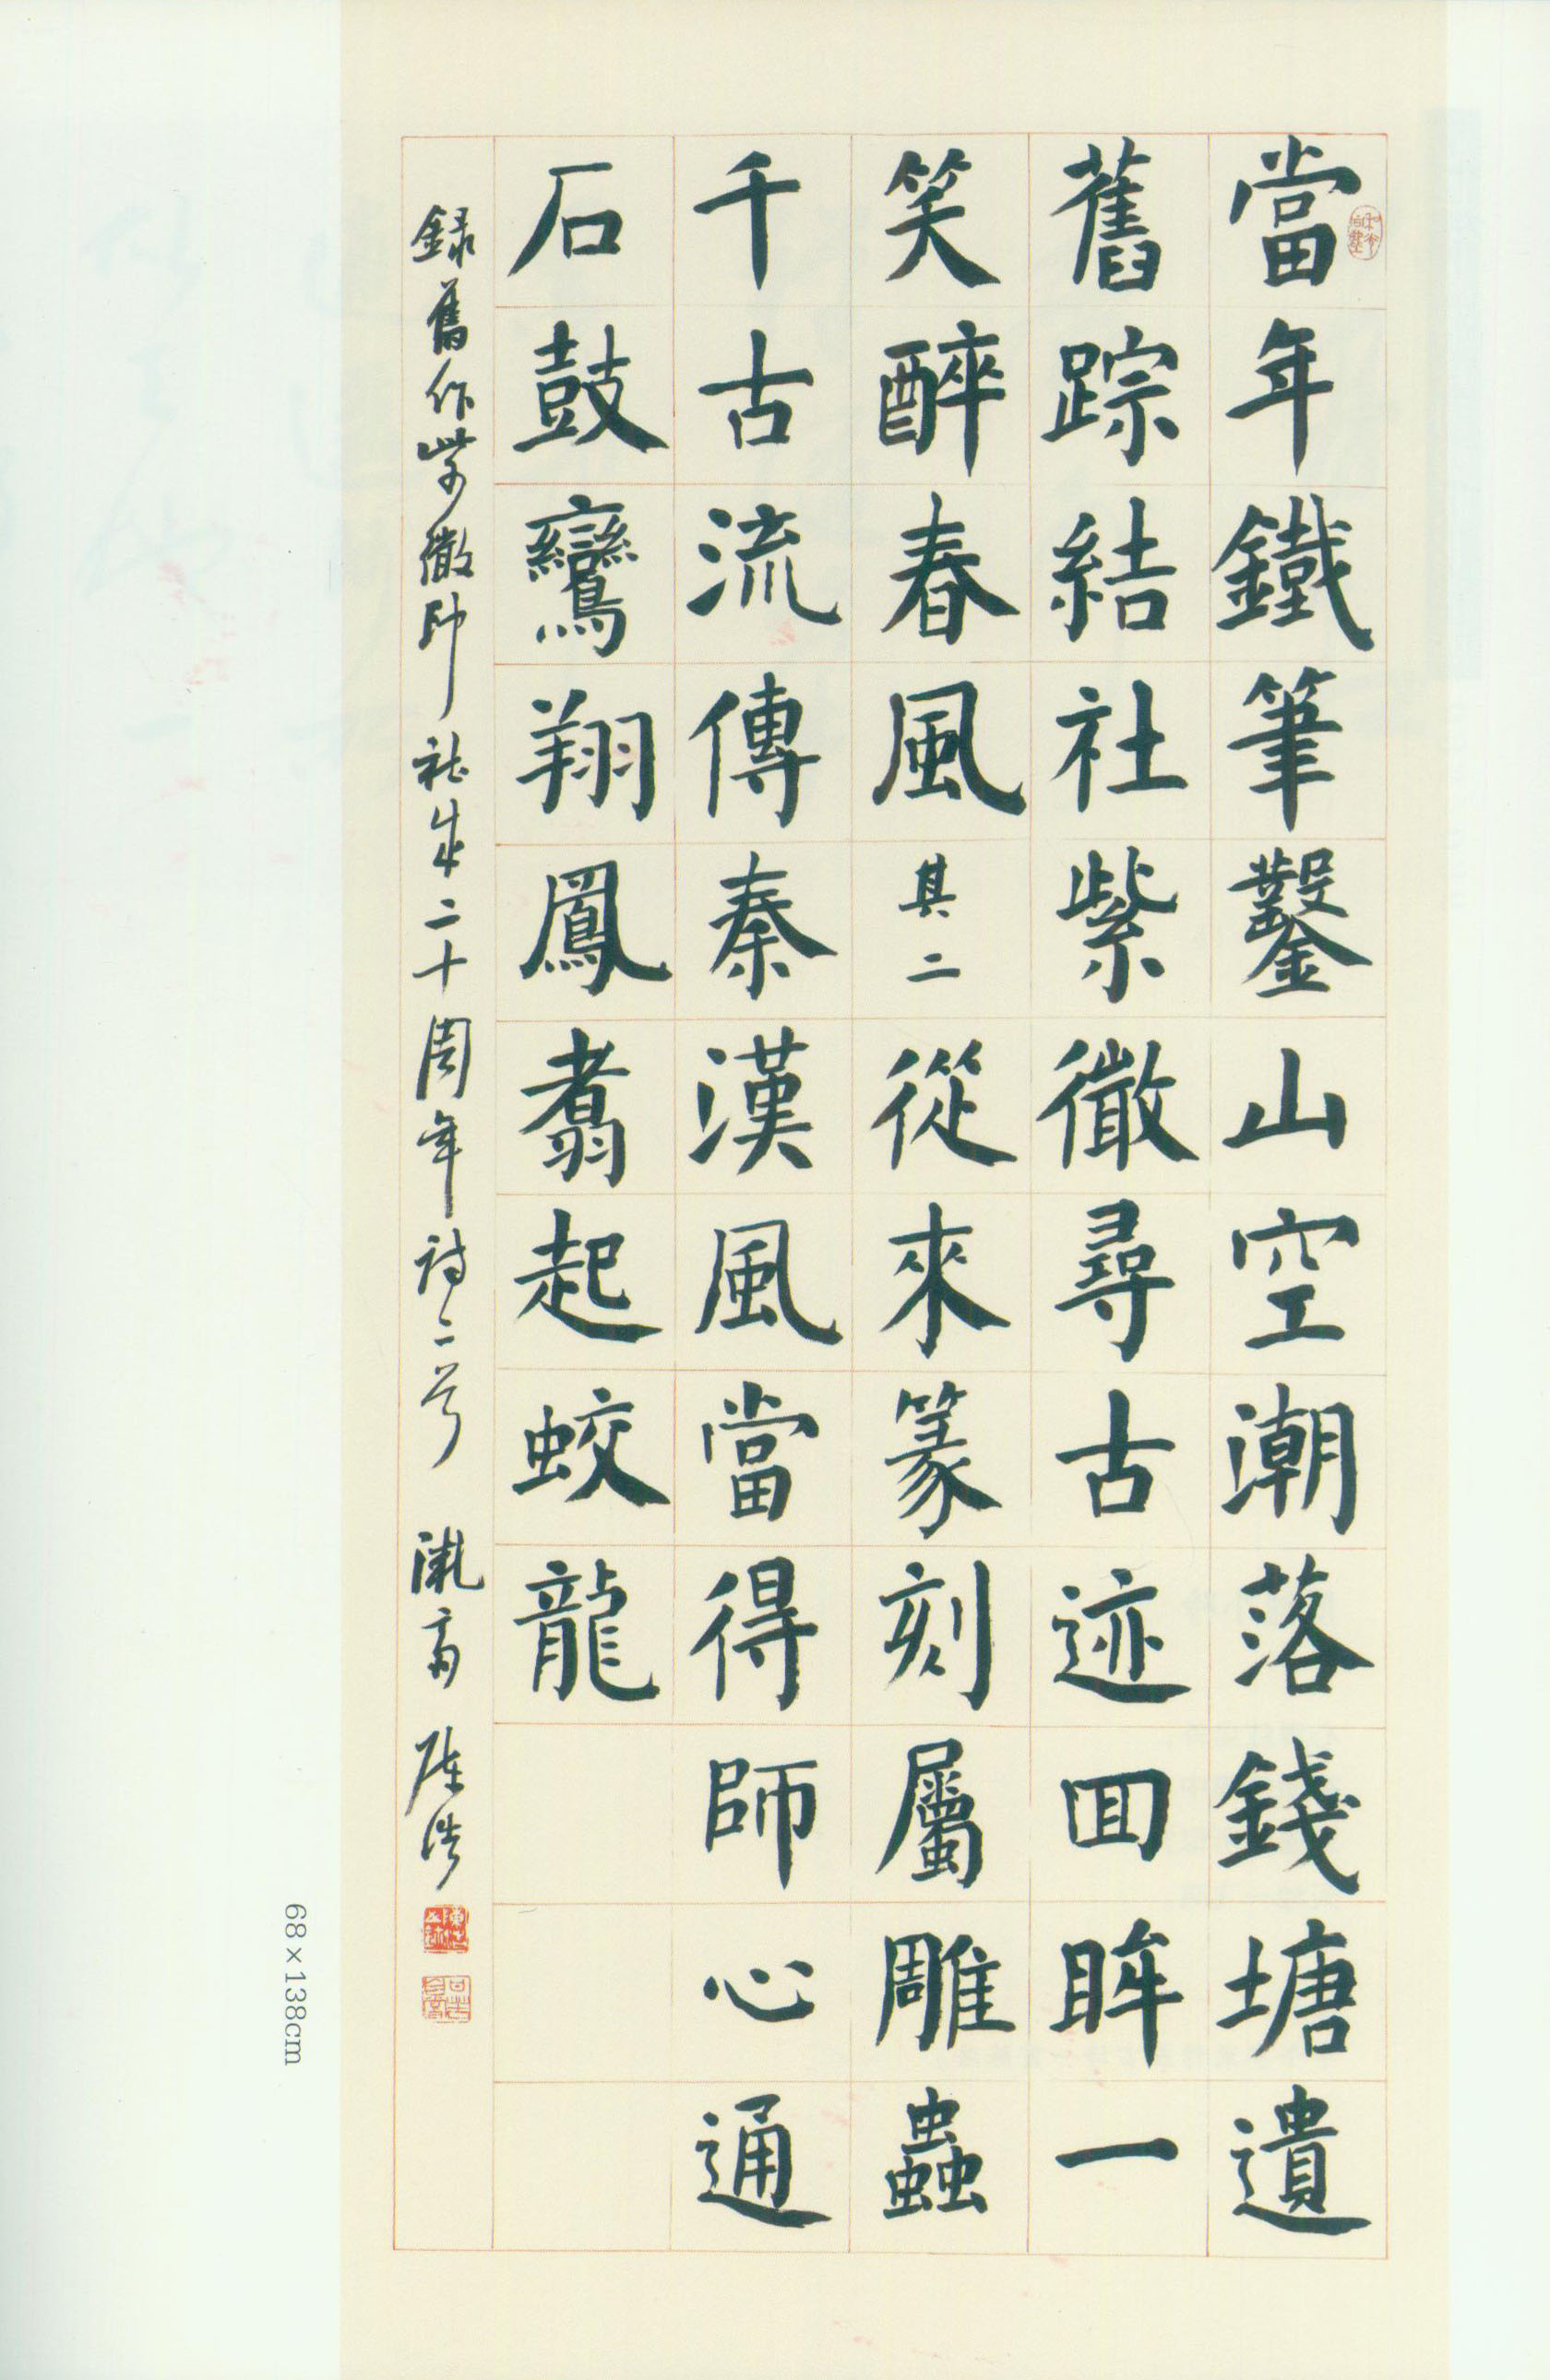 當年鐵筆鑿山空潮落錢塘遺
舊踪結社紫徽尋古迹回眸一
笑醉春風其二從來篆刻屬雕蟲
千古流傳秦漢風當得師心通
石鼓鸞翔鳳翥起蛟龍
錄舊作紫徽印社成二十周年詩二首 漱齋 陳浩
68×138cm